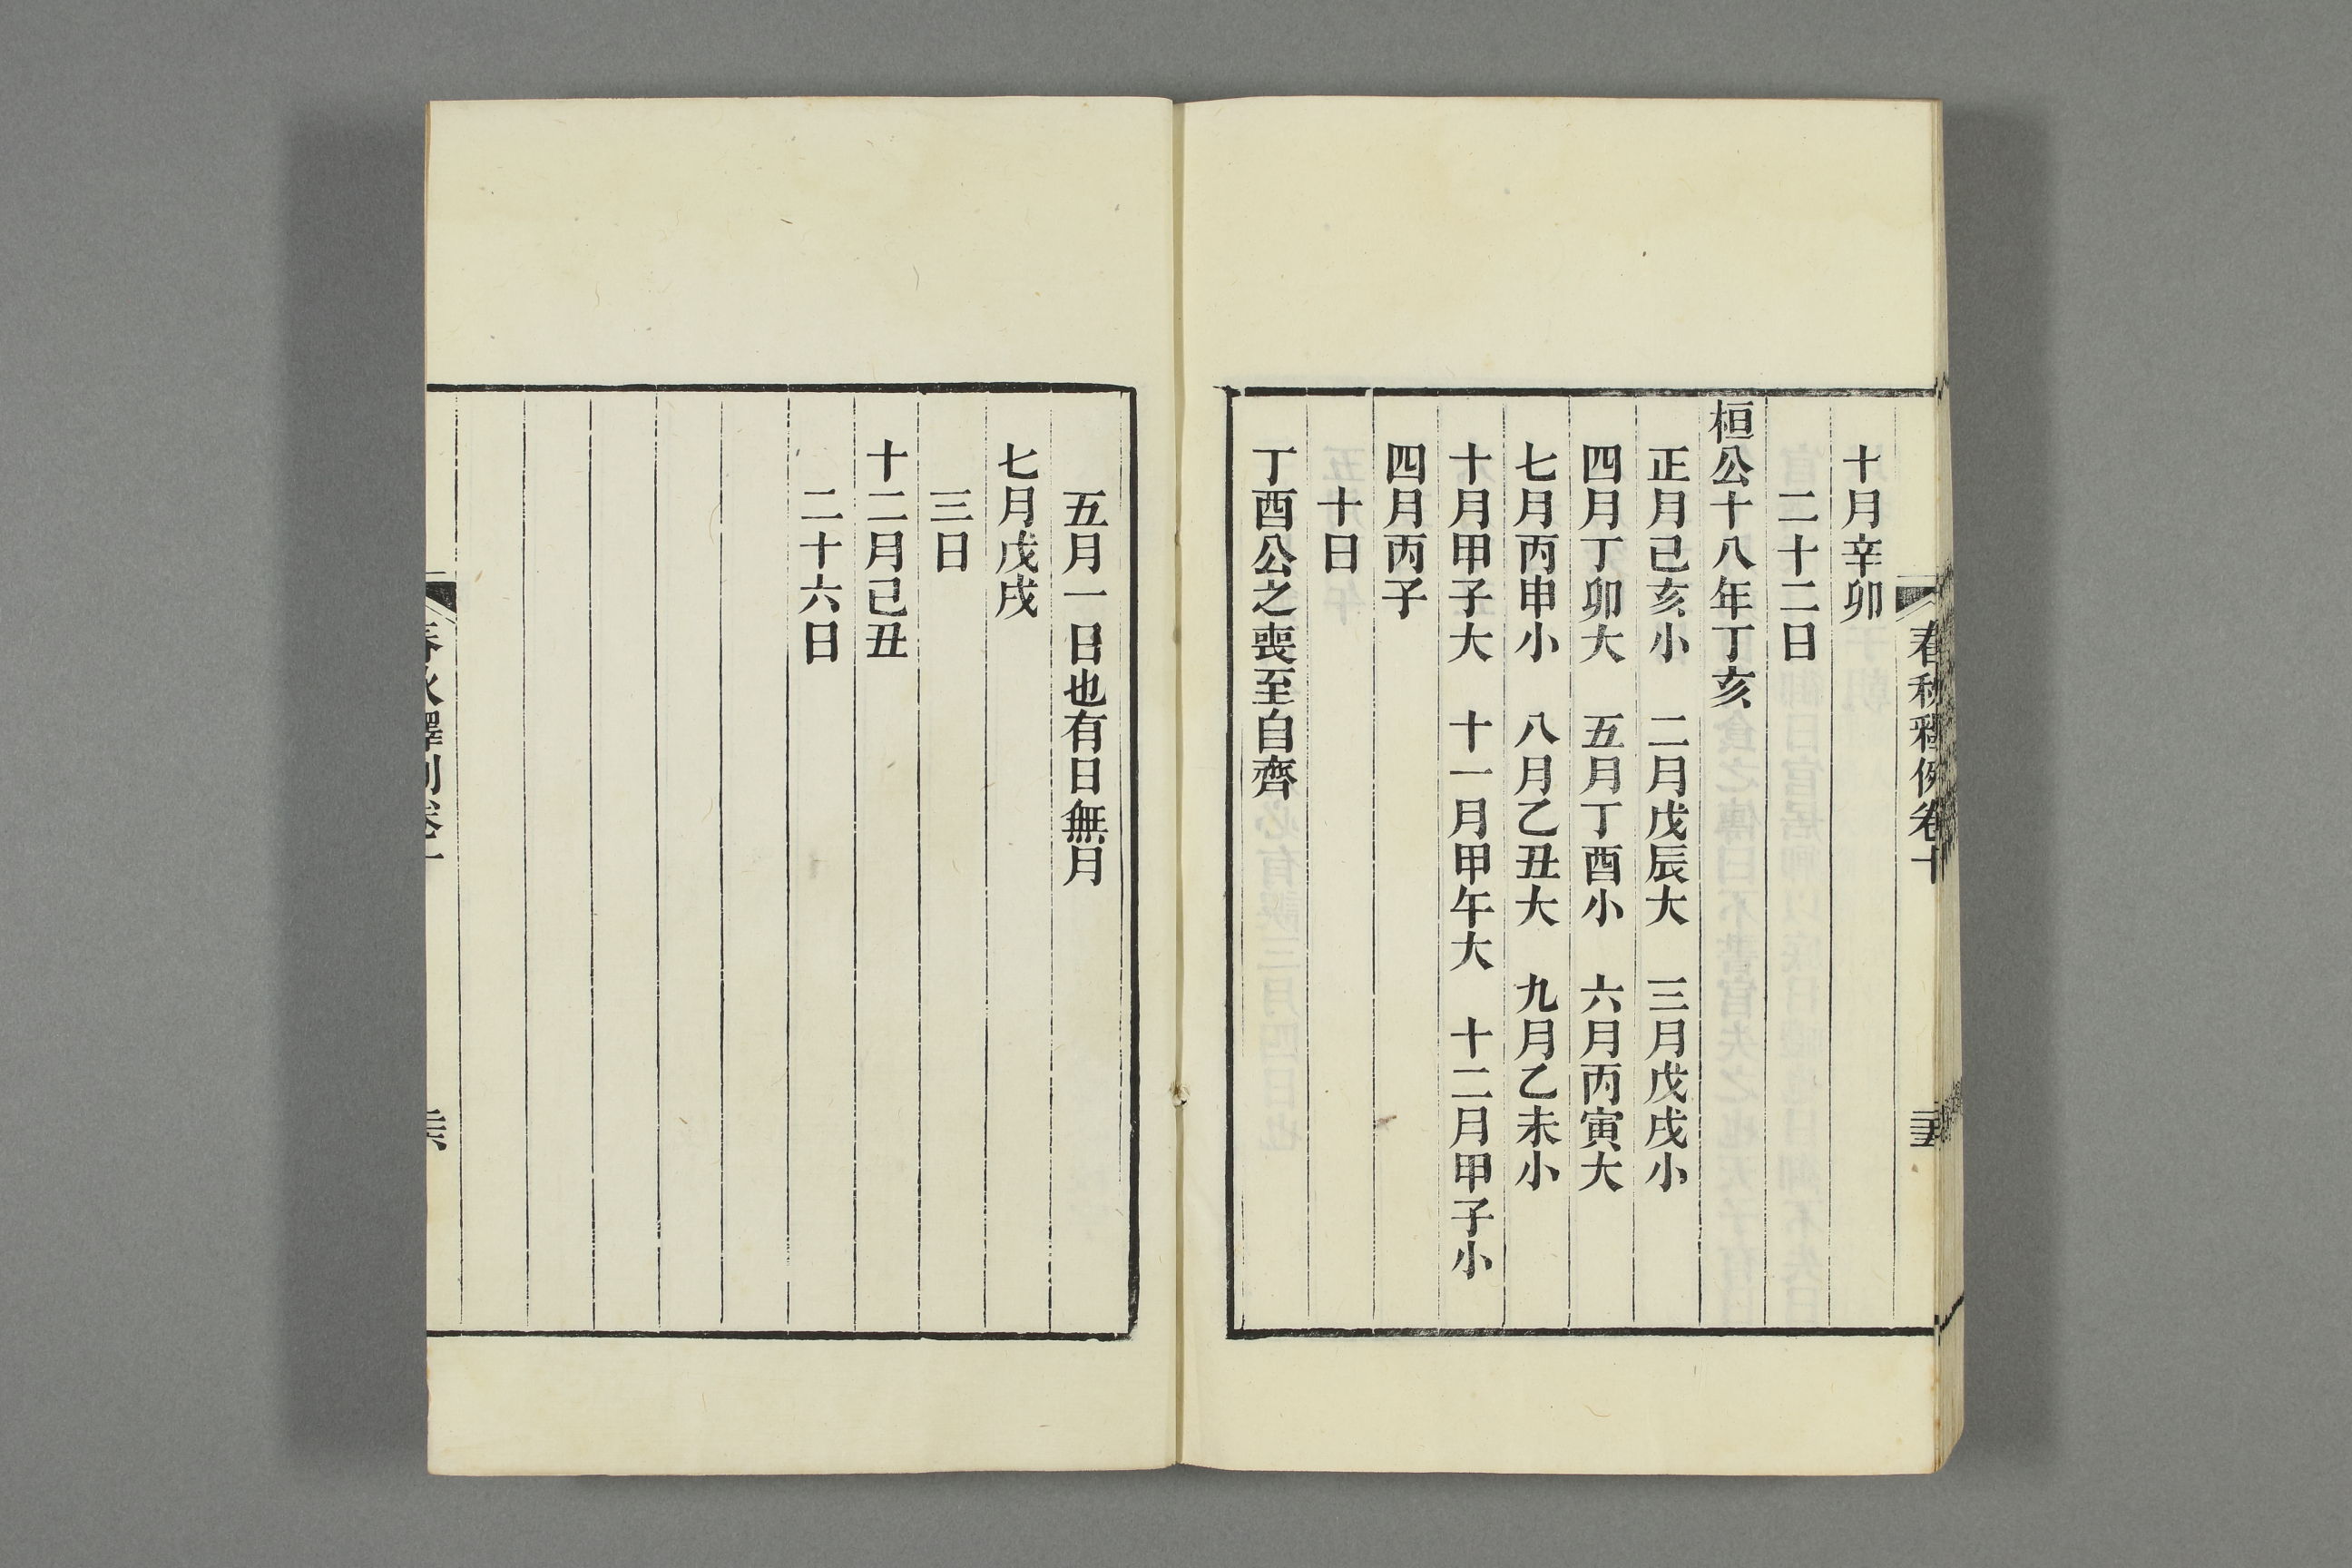 春秋釋例卷十
十月辛卯
二十二日
桓公十八年丁亥
正月己亥小　二月戊辰大　三月戊戌小
四月丁卯大　五月丁酉小　六月丙寅大
七月丙申小　八月乙丑大　九月乙未小
十月甲子大　十一月甲午大　十二月甲子小
四月丙子
十日
丁酉公之喪至自齊
五月一日也有日無月
七月戊戌
三日
十二月己丑
二十六日
春秋釋例卷十